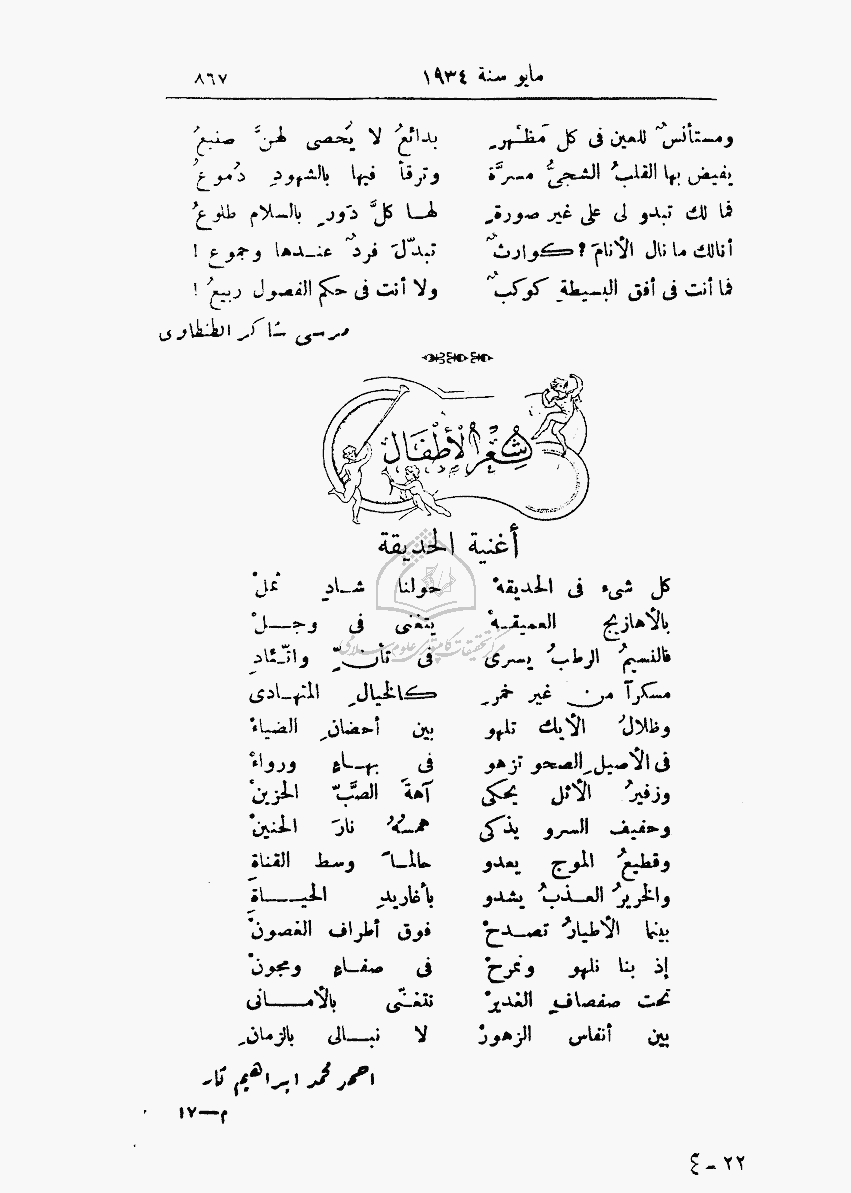 مايو سنة ١٩٣٤ ٨٦٧
ومستأنسٌ للعين فى كل مَظهرٍ بدائعُ لا يُحصى لهنَّ صنيعُ
يفيض بها القلبُ الشجىُّ مسرَّةً وترقأ فيها بالشهودِ دُموعُ
فما لك تبدو لى على غير صورةٍ لها كلَّ دَورٍ بالسلام طلوعُ
أنالك ما نال الأنامَ؟ كوارثٌ تبدّلَ فردٌ عندها وجموع !
فما أنت فى أفق البسيطةِ كوكبٌ ولا أنت فى حكم الفصول ربيعُ !
مرسى شاكر الطنطاوى
شِعْرُ الأَطْفَال
أغنية الحديقة
كل شىء فى الحديقهْ حولنا شادٍ ثملْ
بالأهازيج العميقهْ يتغنى فى وجلْ
فالنسيمُ الرطبُ يسرى فى تأنٍّ واتّئادِ
مسكراً من غير خمرٍ كالخيالِ المتهادى
وظلالُ الأيك تلهو بين أحضانِ الضياءْ
فى الأصيلِ الصحو تزهو فى بهاءٍ ورواءْ
وزفيرُ الأثل يحكى آهةَ الصَّبّ الحزينْ
وحفيف السرو يذكى همسُهُ نارَ الحنينْ
وقطيعُ الموج يعدو حالماً وسط القناةْ
والخريرُ العذبُ يشدو بأغاريدِ الحياةْ
بينما الأطيارُ تصدحْ فوق أطراف الغصونْ
إذ بنا نلهو ونمرحْ فى صفاءٍ ومجونْ
تحت صفصافِ الغديرْ نتغنّى بالأمانى
بين أنفاس الزهورْ لا نبالى بالزمانِ
احمد محمد ابراهيم
م—١٧
٢٢ - ٤
مركز تحقيقات كامپيوتری علوم اسلامی